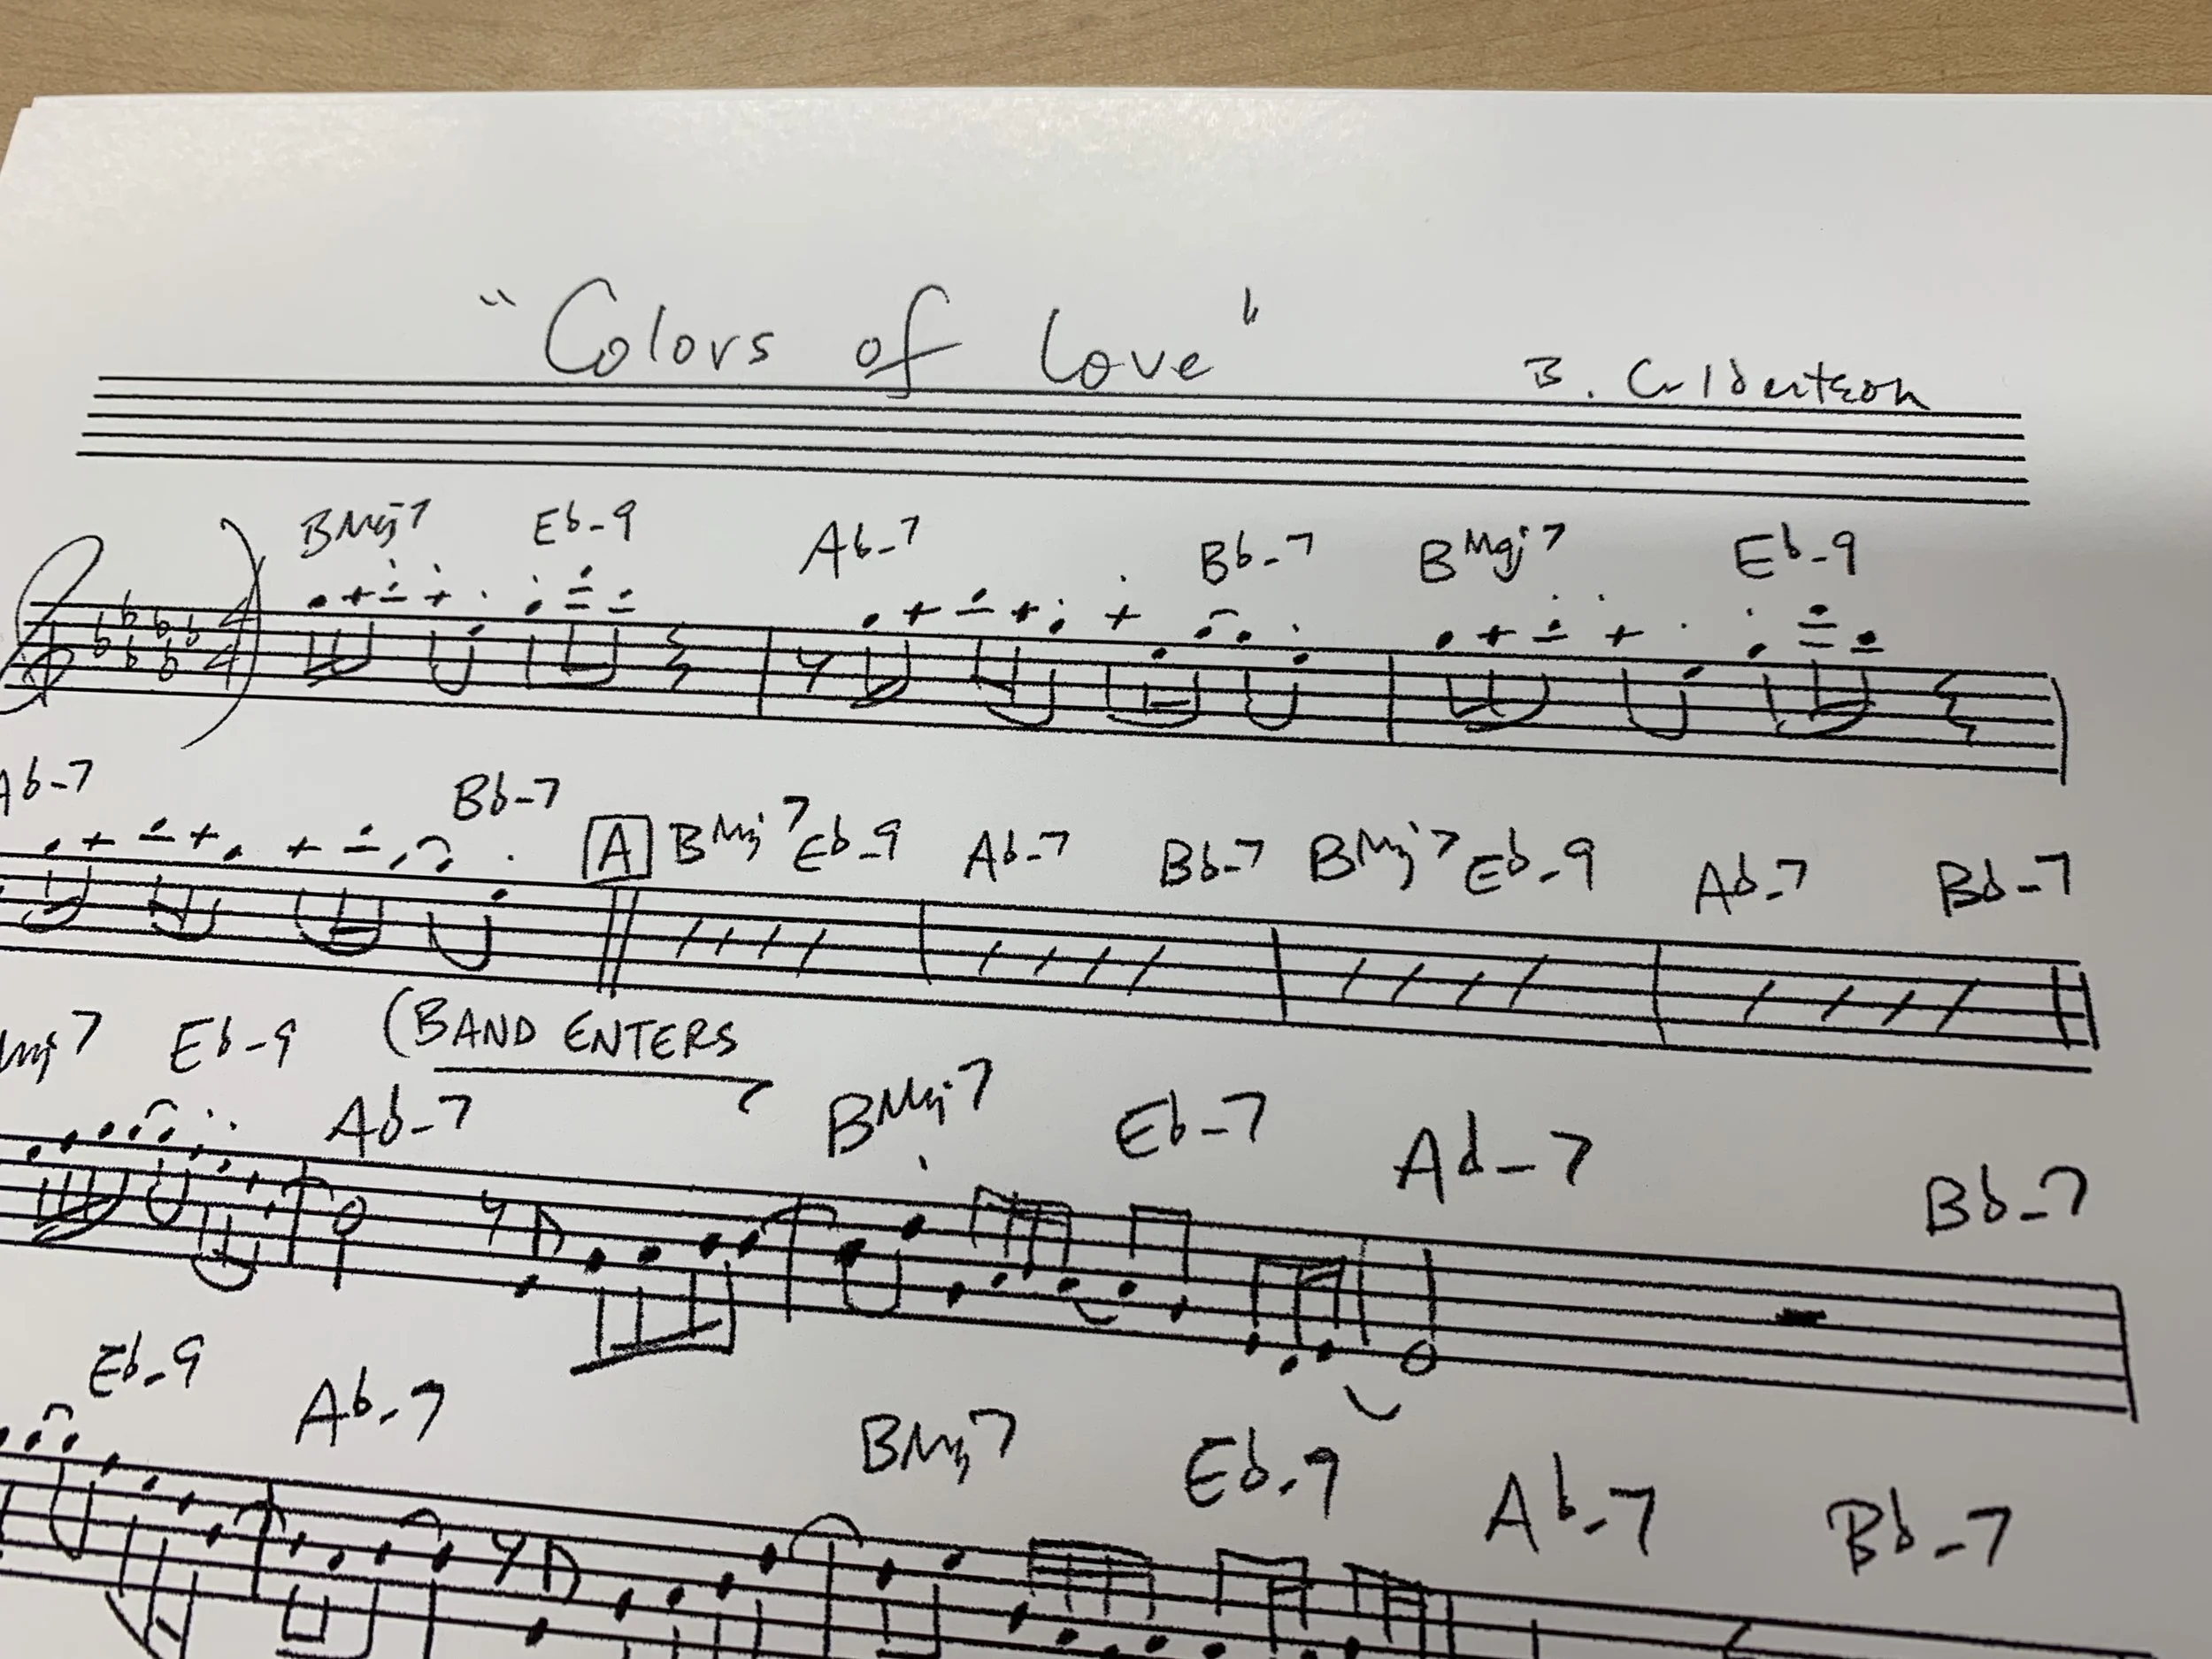 "Colors of Love"
B. Culbertson
BMaj7 Eb-9 Ab-7 Bb-7 BMaj7 Eb-9
4
4
Ab-7 Bb-7 A BMaj7 Eb-9 Ab-7 Bb-7 BMaj7 Eb-9 Ab-7 Bb-7
(BAND ENTERS
Maj7 Eb-9 Ab-7 BMaj7 Eb-7 Ab-7 Bb-7
Eb-9 Ab-7 BMaj7 Eb-9 Ab-7 Bb-7